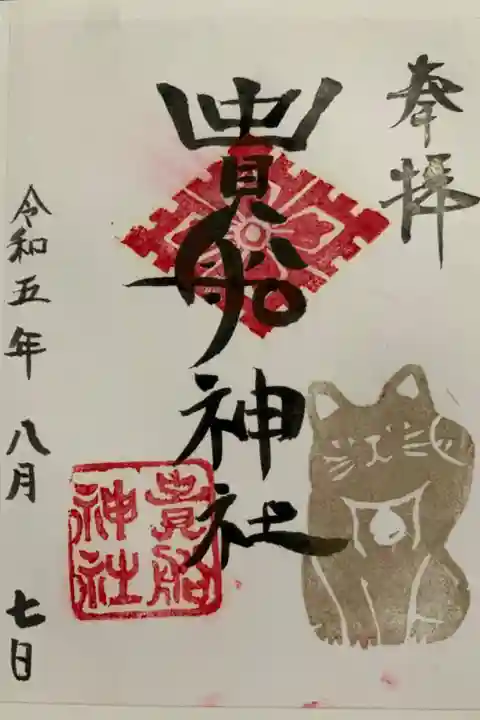 奉拝
貴船
神社
貴船
神社
令和五年 八月 七日